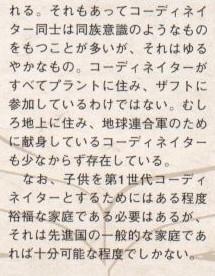 れる。それもあってコーディネイ
ター同士は同族意識のようなもの
をもつことが多いが、それはゆる
やかなもの。コーディネイターが
すべてプラントに住み、ザフトに
参加しているわけではない。むし
ろ地上に住み、地球連合軍のため
に献身しているコーディネイター
も少なからず存在している。
なお、子供を第1世代コーディ
ネイターとするためにはある程度
裕福な家庭である必要はあるが、
それは先進国の一般的な家庭であ
れば十分可能な程度でしかない。